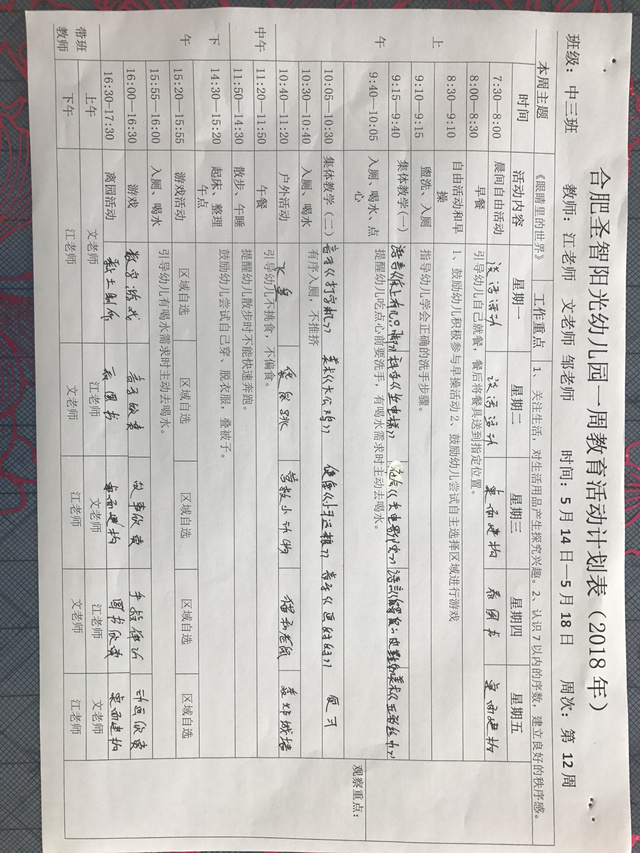 合肥圣智阳光幼儿园一周教育活动计划表（2018 年）
班级：中三班 教师：江老师 文老师 邹老师 时间：5 月 14 日—5 月 18 日 周次：第 12 周
本周主题 《眼睛里的世界》 工作重点 1、关注生活，对生活用品产生探究兴趣。2、认识 7 以内的序数，建立良好的秩序感。
时间 活动内容 星期一 星期二 星期三 星期四 星期五
上午
7:30—8:00 晨间自由活动 谈话活动 谈话活动 桌面建构 看图书 桌面建构
8:00—8:30 早餐 引导幼儿自己就餐，餐后将餐具送到指定位置。
8:30—9:10 自由活动和早操 1、鼓励幼儿积极参与早操活动 2、鼓励幼儿尝试自主选择区域进行游戏
9:10—9:15 盥洗、入厕 指导幼儿学会正确的洗手步骤。
9:15—9:40 集体教学(一)
9:40—10:05 入厕、喝水、点心 提醒幼儿吃点心前要洗手，有喝水需求时主动去喝水。
10:05—10:30 集体教学（二） 音乐《打字机》
10:30—10:40 入厕、喝水 有序入厕，不推挤
10:40—11:20 户外活动 袋鼠跳
中午
11:20—11:50 午餐 引导幼儿不挑食，不偏食。
11:50—14:30 散步、午睡 提醒幼儿散步时不能快速奔跑。
下午
14:30—15:20 起床、整理 午点 鼓励幼儿尝试自己穿、脱衣服，叠被子。
15:20—15:55 游戏活动 区域自选 区域自选 区域自选 区域自选 区域自选
15:55—16:00 入厕、喝水 引导幼儿有喝水需求时主动去喝水。
16:00—16:30 游戏 音乐欣赏 故事欣赏 动画欣赏
16:30—17:30 离园活动 看图书 桌面建构 图书欣赏 桌面建构
带班教师 上午 文老师 江老师 文老师 江老师 文老师
下午 江老师 文老师 江老师 文老师 江老师
观察重点：